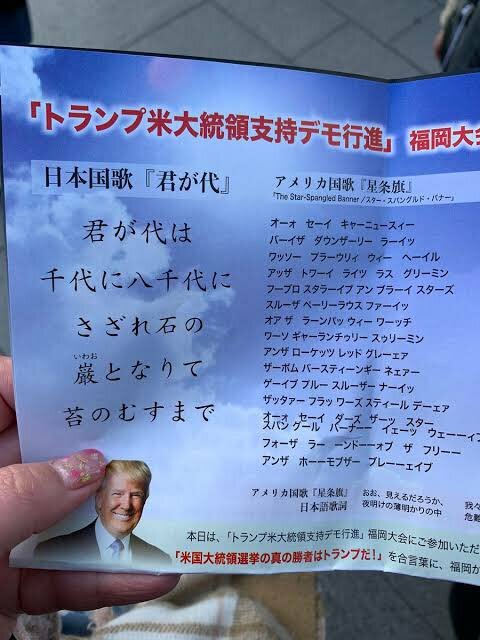 「トランプ米大統領支持デモ行進」 福岡大会
日本国歌『君が代』
君が代は
千代に八千代に
さざれ石の
いわお
巌となりて
苔のむすまで
アメリカ国歌『星条旗』
「The Star-Spangled Banner／スター・スパングルド・バナー」
オーォ セーイ キャーニュースィー
バーイザ ダウンザーリー ラーイッ
ワッソー プラーウリィ ウィー ヘーイル
アッザ トワーイ ライツ ラス グリーミン
フーブロ スタラーイプ アン ブラーイ スターズ
スルーザ ペーリーラウス ファーイッ
オア ザ ラーンパッ ウィー ワーッチ
ワーソ ギャーランチゥリー スゥリーミン
アンザ ローケッツ レッド グレーェア
ザーボム バースティーンギー ネェアー
ゲーイブ プルー スルーザー ナーイッ
ザッタァー フラッ ワーズ スティール デーェア
オーォ セーイ ダーズ ザーッ スター
スパンゲール バーナー イェーツ ウェーーイブ
フォーザ ラー ーンドーーオブ ザ フリーー
アンザ ホーーモブザー ブレーーェイブ
アメリカ国歌『星条旗』
日本語歌詞
おお、見えるだろうか、
夜明けの薄明かりの中
我々
危難
本日は、「トランプ米大統領支持デモ行進」福岡大会にご参加いただ
「米国大統領選挙の真の勝者はトランプだ！」を合言葉に、福岡か